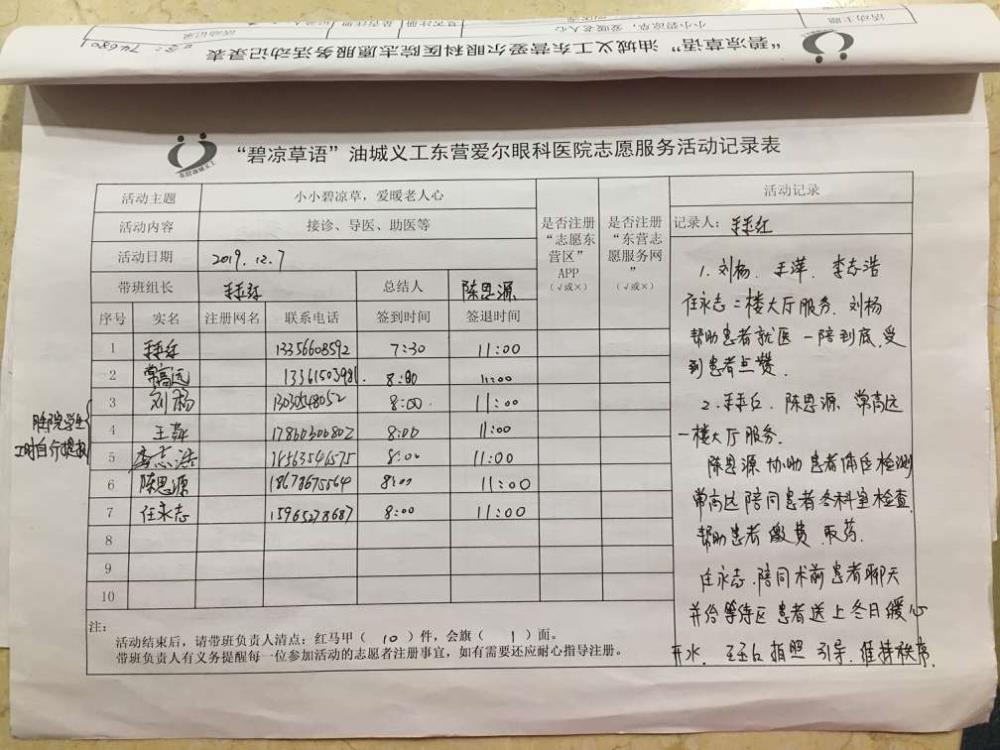 "碧凉草语"油城义工东营爱尔眼科医院志愿服务活动记录表
"碧凉草语"油城义工东营爱尔眼科医院志愿服务活动记录表
活动主题 小小碧凉草，爱暖老人心
活动内容 接诊、导医、助医等
活动日期 2019.12.7
带班组长 总结人 陈思源
是否注册"志愿东营区"APP（√或×）
是否注册"东营志愿服务网"（√或×）
序号 实名 注册网名 联系电话 签到时间 签退时间
1 13356608592 7:30 11:00
2 常高远 13361503981 8:00 11:00
3 刘杨 13030548052 8:00 11:00
4 王萍 17860300802 8:00 11:00
5 李志浩 8:00 11:00
6 陈思源 18678675564 8:00 11:00
7 任永志 15965278687 8:00 11:00
8
9
10
学生
工时自行提取
注：
活动结束后，请带班负责人清点：红马甲（ 10 ）件，会旗（ 1 ）面。
带班负责人有义务提醒每一位参加活动的志愿者注册事宜，如有需要还应耐心指导注册。
活动记录
记录人：
1. 刘杨、王萍、李志浩
任永志二楼大厅服务.刘杨
帮助患者就医一陪到底,受
到患者点赞.
2. 陈思源、常高远
一楼大厅服务.
陈思源协助患者体征检测
常高远陪同患者各科室检查
帮助患者缴费、取药.
任永志.陪同术前患者聊天
并给等待区患者送上冬日暖心
开水. 拍照、引导、维持秩序.